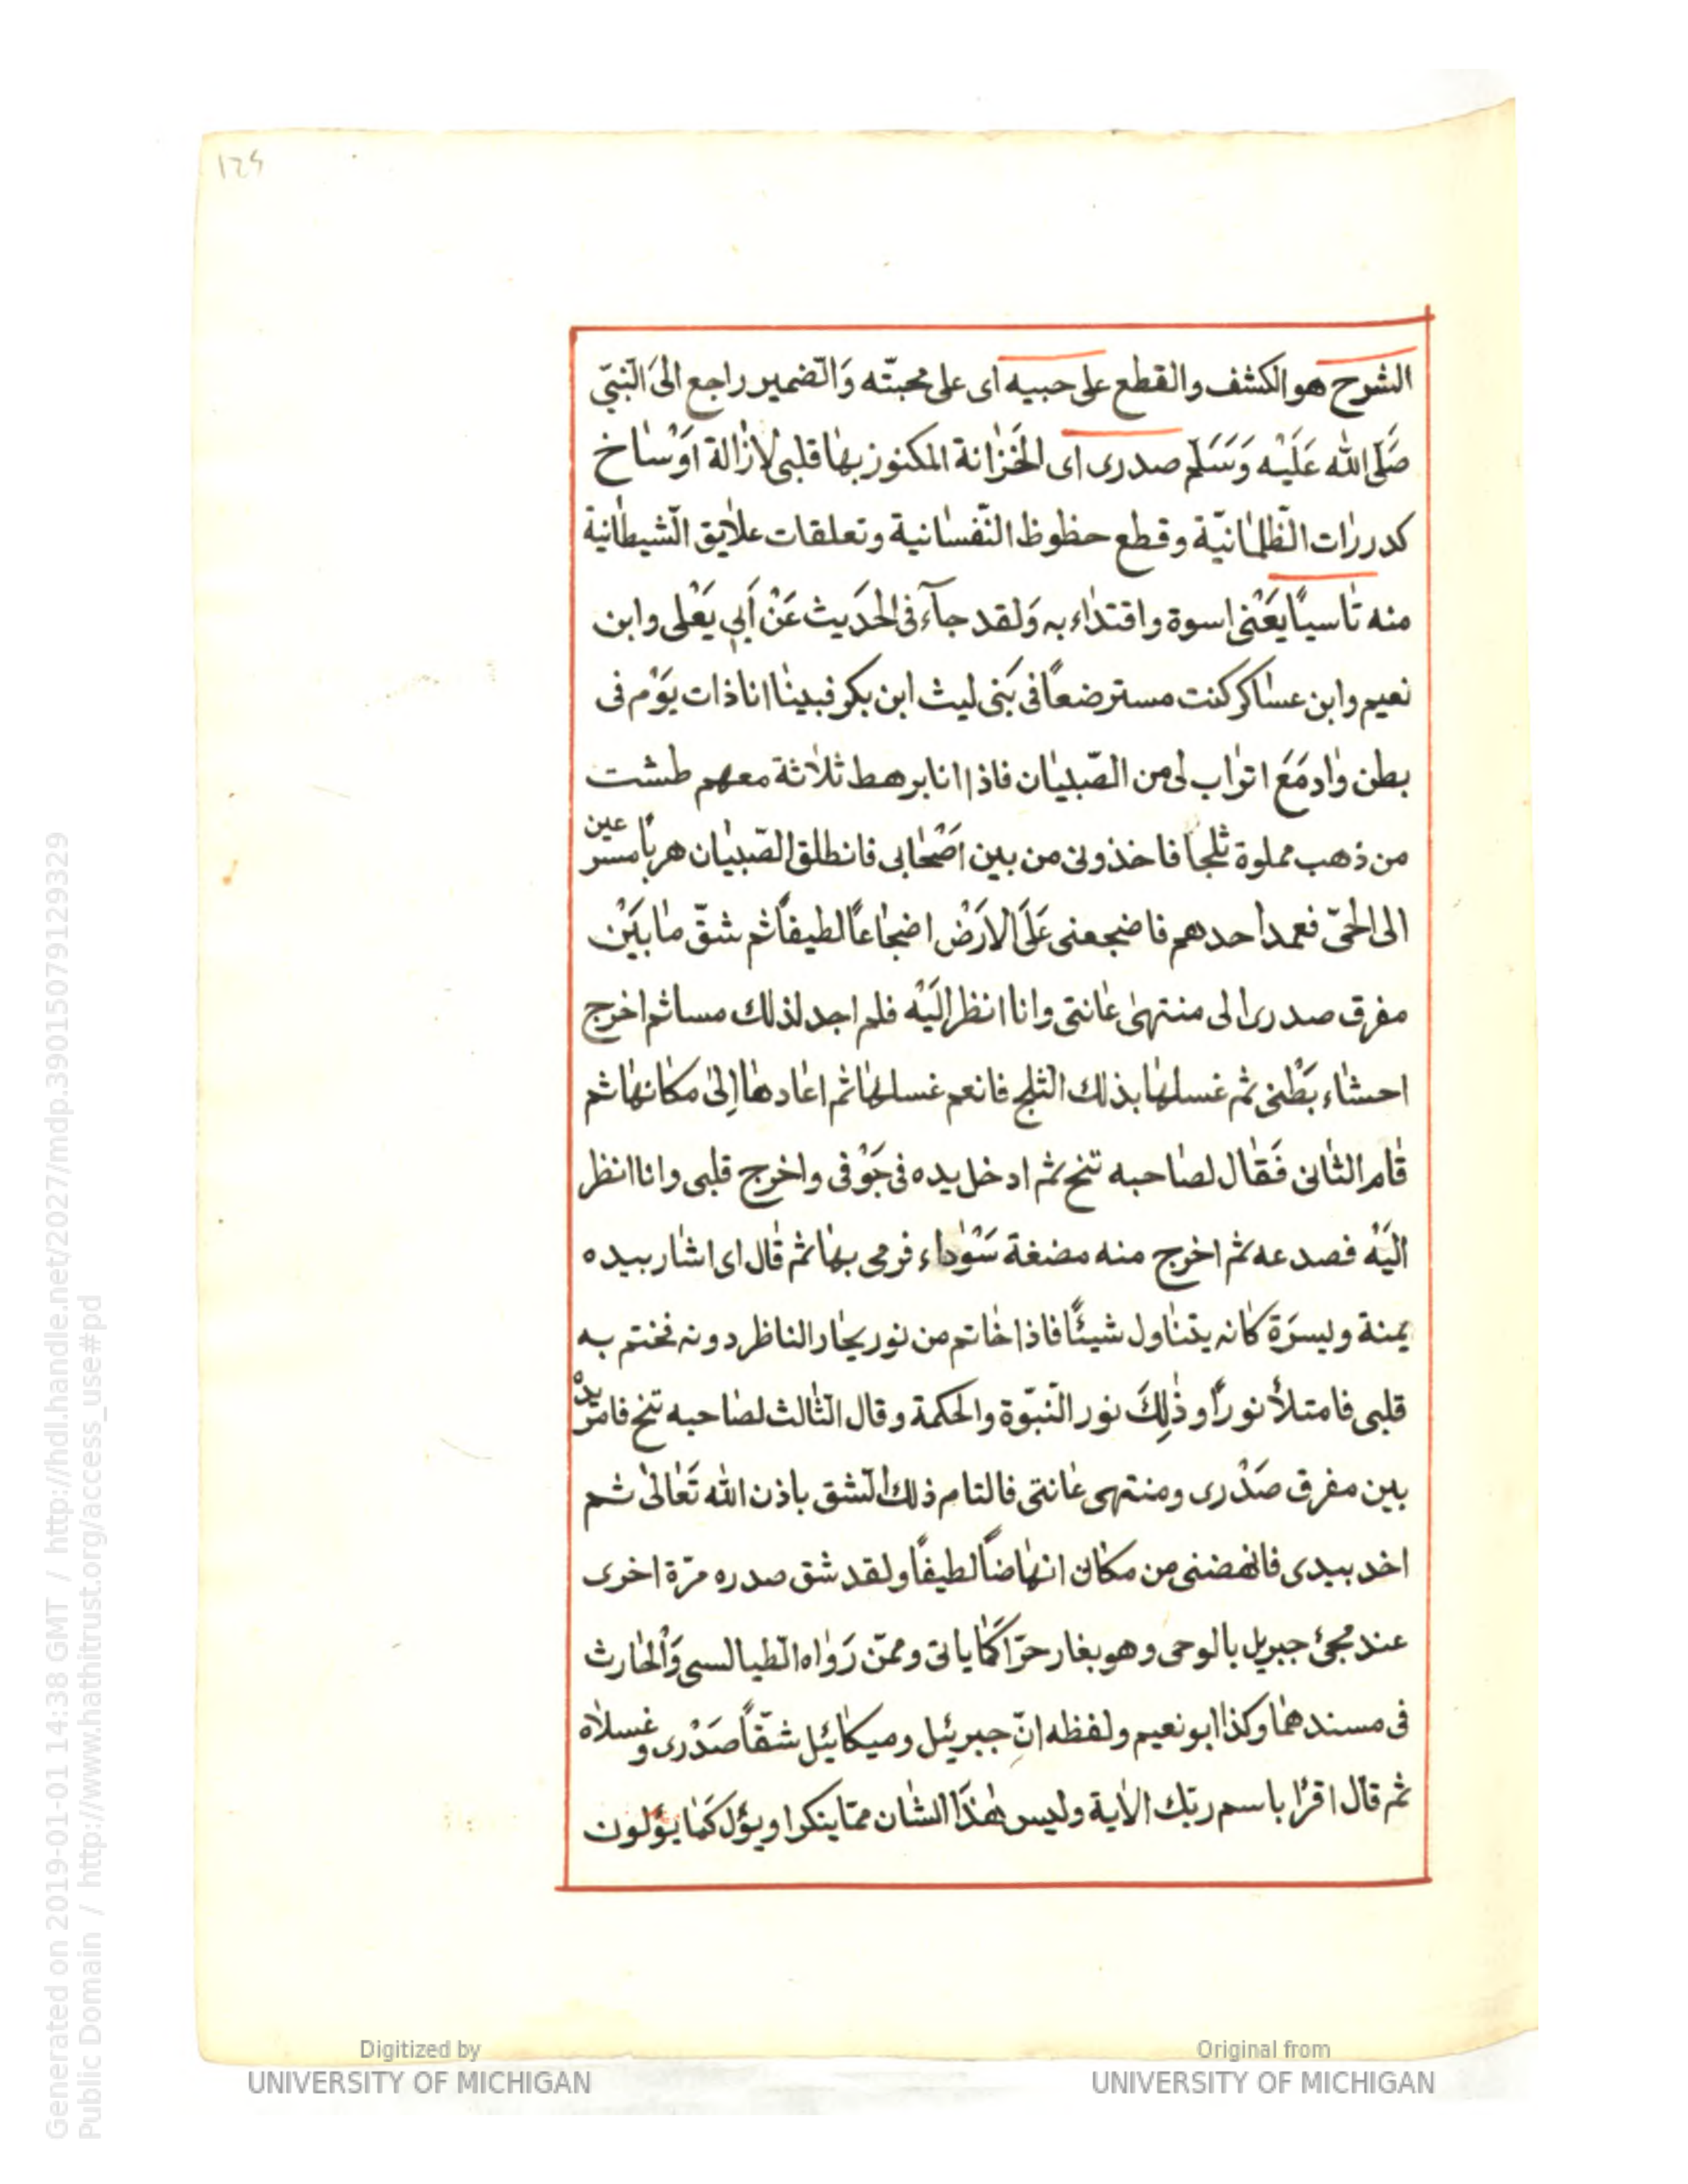 ١٢٤
الشرح هو الكشف والقطع على حبيبه اى على محبتّه وَالضّمير راجع الىَ النّبىّ
صَلّى الله عَلَيْه وَسَلّم صدرى اى الخَزانة المكنوز بها قلبى لازالة اوْساخ
كدررات الظّلمانيّة وقطع حظوظ النّفسانية وتعلقات علايق الشّيطانية
منه تاسيًا يَعْنى اسوة واقتداء به وَلقد جآء فى الحَديث عَنْ اَبي يَعْلى وابن
نعيم وابن عساكر كنت مسترضعًا فى بَنى ليث ابن بكر فبينا انا ذات يَوْم فى
بطن واد مَعَ اتراب لى من الصّبيان فاذا انا برهط ثلاثة معهم طشت
من ذهب مملوة ثلجا فاخذونى من بين اصْحابى فانطلق الصّبيان هربًا مسرعين
الى الحىّ فعمد احدهم فاضجعنى عَلَى الارَضْ اضجاعًا لطيفًا ثم شقّ ما بَيْن
مفرق صدرى الى منتهى عانتى وانا انظر اليَه فلم اجد لذلك مسا ثم اخرج
احشاء بَطْنى ثم غسلها بذلك الثلج فانعم غسلها ثم اعادها اِلى مكانها ثم
قام الثانى فَقال لصاحبه تنح ثم ادخل يده فى جَوْفى واخرج قلبى وانا انظر
اليَه فصدعه ثم اخرج منه مضغة سَوْداء فرمى بها ثم قال اى اشار بيده
يمنة ويسرَة كانه يتناول شيئًا فاذا خاتم من نور يحار الناظر دونه فختم به
قلبى فامتلأ نورًا وذٰلِكَ نور النّبوّة والحكمة وقال الثالث لصاحبه تنح فامرّ يده
بين مفرق صَدْرى ومنتهى عانتى فالتام ذلك الشق باذن الله تَعالى ثم
اخد بيدى فانهضنى من مكان انهاضًا لطيفًا ولقد شق صدره مرّة اخرى
عند مجئ جبريل بالوحى وهو بغار حرّا كما ياتى وممّن رَواه الطيالسى وَالحارث
فى مسندهما وكذا ابو نعيم ولفظه انّ جبرئيل وميكائيل شقّا صَدْرى وغسلاه
ثم قال اقرا باسم ربّك الاية وليس هٰذَا الشان ممّا ينكر او يؤل كَما يؤلون
Digitized by
UNIVERSITY OF MICHIGAN
Original from
UNIVERSITY OF MICHIGAN
Generated on 2019-01-01 14:38 GMT / http://hdl.handle.net/2027/mdp.39015079129329
Public Domain / http://www.hathitrust.org/access_use#pd